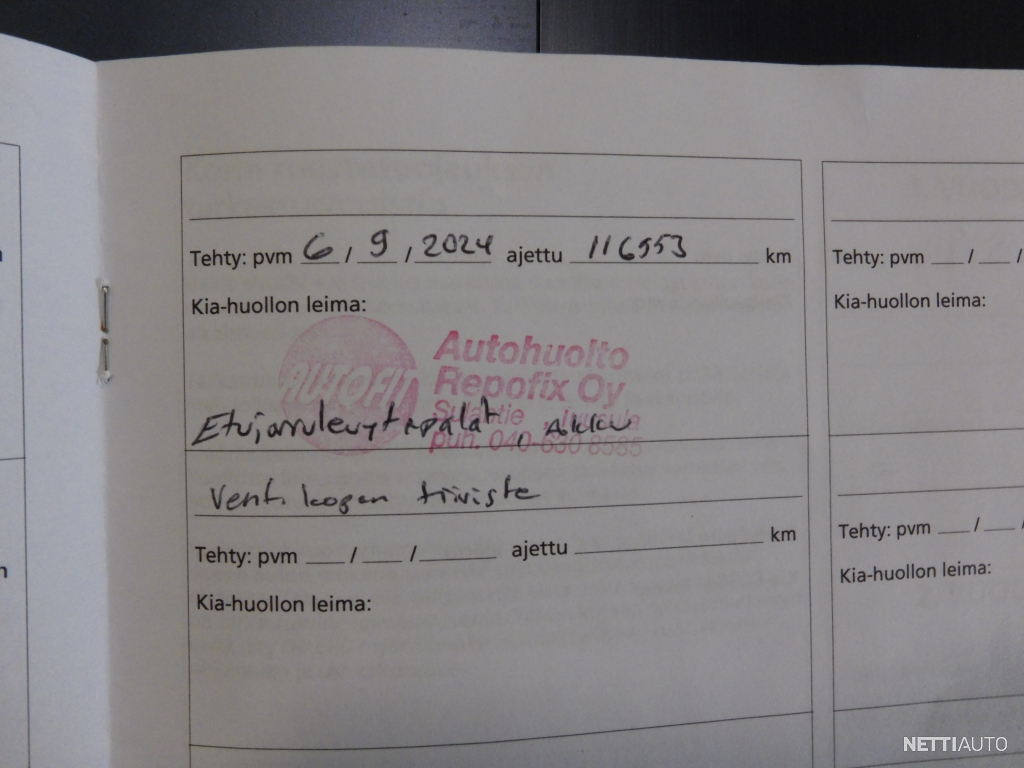 Tehty: pvm 6 / 9 / 2024 ajettu 116953 km
Kia-huollon leima:
AUTOFIT
Autohuolto
Repofix Oy
puh. 040-630 8585
Etujarrulevyt+palat, Akku
vent. kopan tiiviste
Tehty: pvm / / ajettu km
Kia-huollon leima:
Tehty: pvm / /
Kia-huollon leima:
Tehty: pvm / /
Kia-huollon leima:
NETTIAUTO